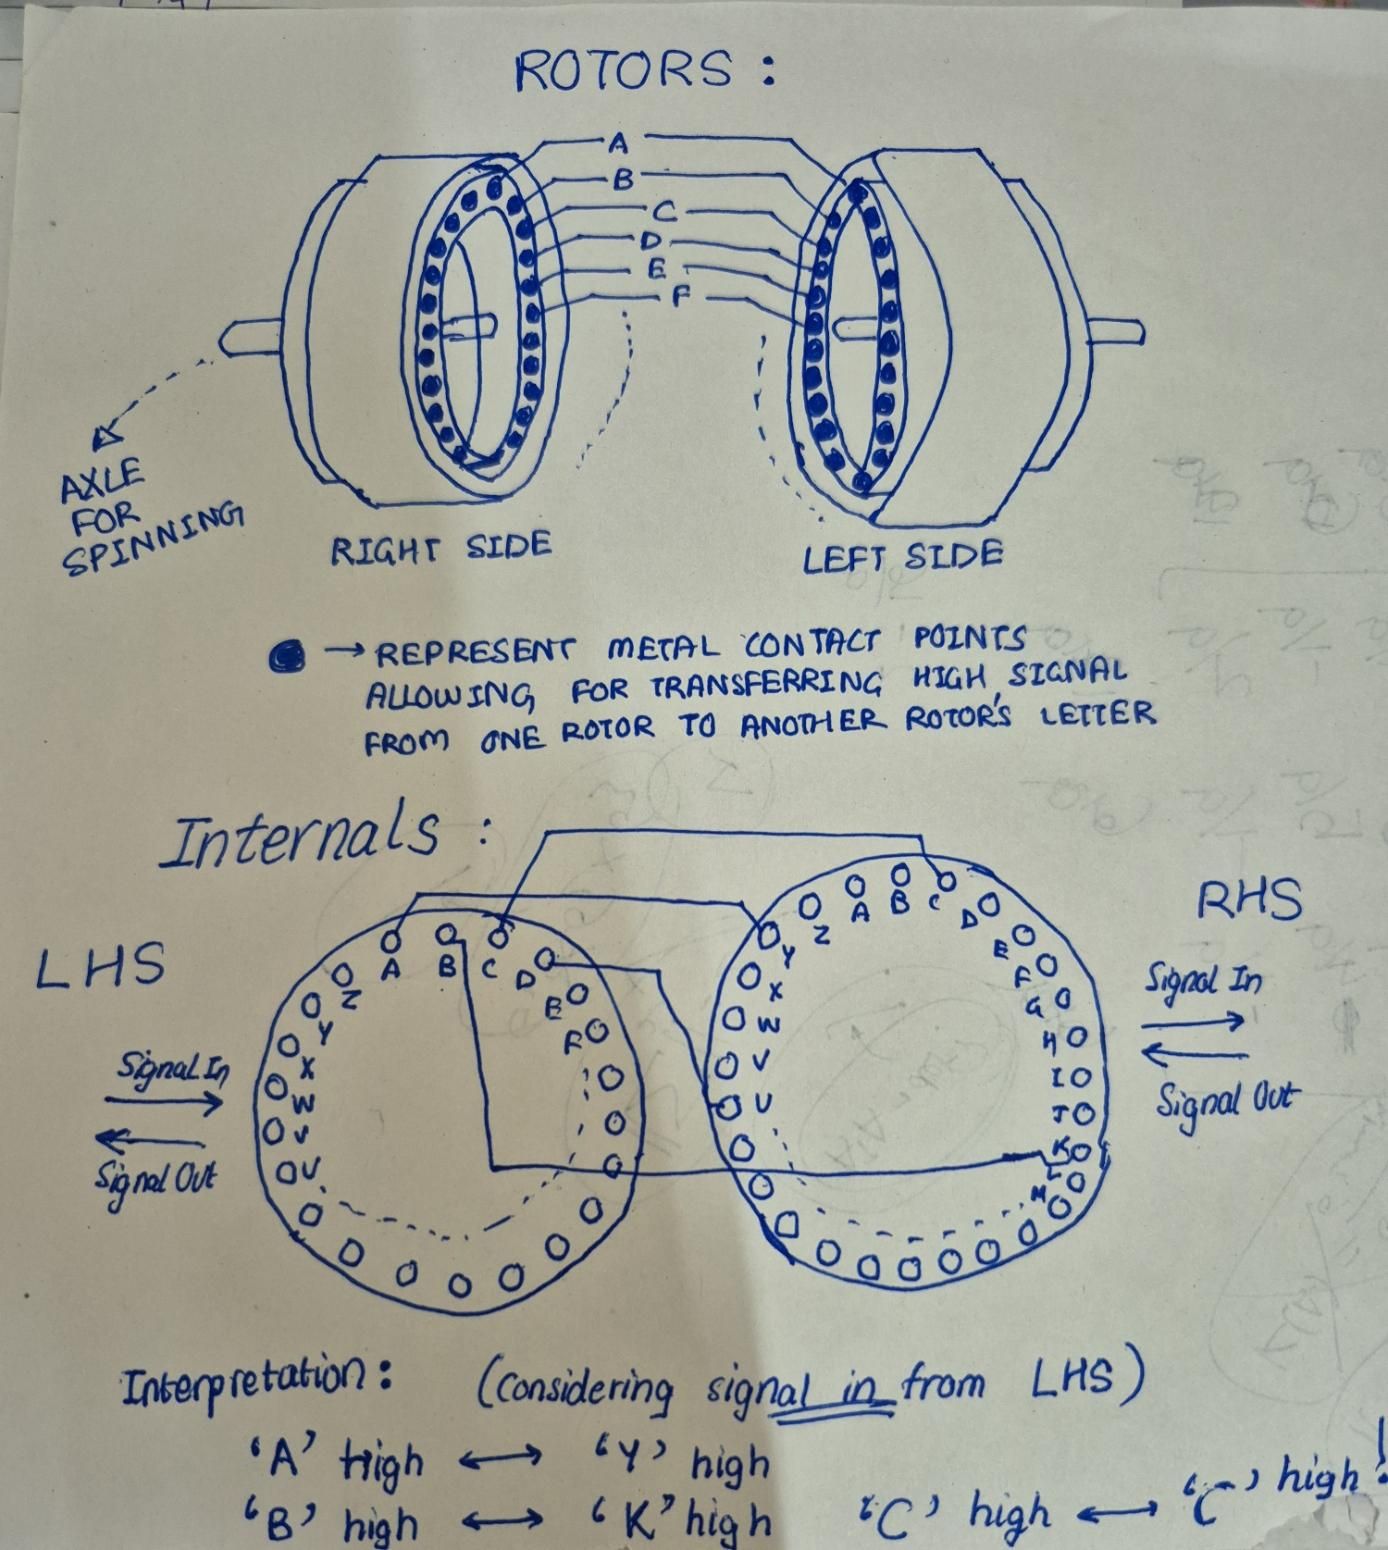 ROTORS :
A
B
C
D
E
F
AXLE
FOR
SPINNING
RIGHT SIDE
LEFT SIDE
→ REPRESENT METAL CONTACT POINTS
ALLOWING FOR TRANSFERRING HIGH SIGNAL
FROM ONE ROTOR TO ANOTHER ROTOR'S LETTER
Internals :
LHS
RHS
Signal In
Signal Out
A B C D E F
Z Y X W V U
A B C D E F G H I J K L M
Z Y X W V U
Signal In
Signal Out
Interpretation : (Considering signal in from LHS)
'A' high ↔ 'Y' high
'B' high ↔ 'K' high 'C' high ↔ 'C' high!